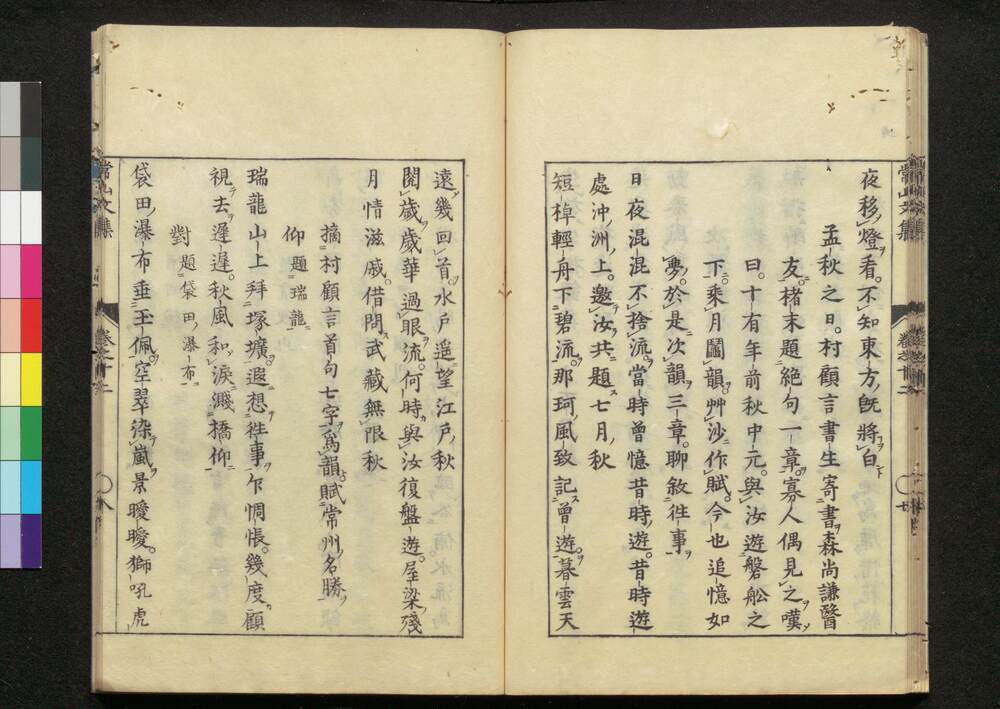 夜移燈看。不知東方既將白
孟秋之日。村顧言書生寄書。森尚謙醫
友。楮末題絶句一章。寡人偶見之嘆
曰。十有年前秋中元。與汝遊磐舩之
下。乘月鬮韻。艸沙作賦。今也追憶如
夢。於是次韻三章。聊敘徃事
日夜混混不捨流。當時曾憶昔時遊。昔時遊
處沖洲上。邀汝共題七月秋
短棹輕舟下碧流。那珂風致記曾遊。暮雲天
遠幾回首。水戸遥望江戸秋
閲歳歳華過眼流。何時與汝復盤遊。屋梁殘
月情滋戚。借問武藏無限秋
摘村顧言首句七字為韻。賦常州名勝
仰題瑞龍
瑞龍山上拜塚壙。遐想徃事乍惆悵。幾度顧
視去遲遲。秋風和淚濺橋仰
對題袋田瀑布
袋田瀑布垂玉佩。空翠染嵐景曖曖。獅吼虎
常山文集
卷之十二
常山文集
卷之十二
八
七